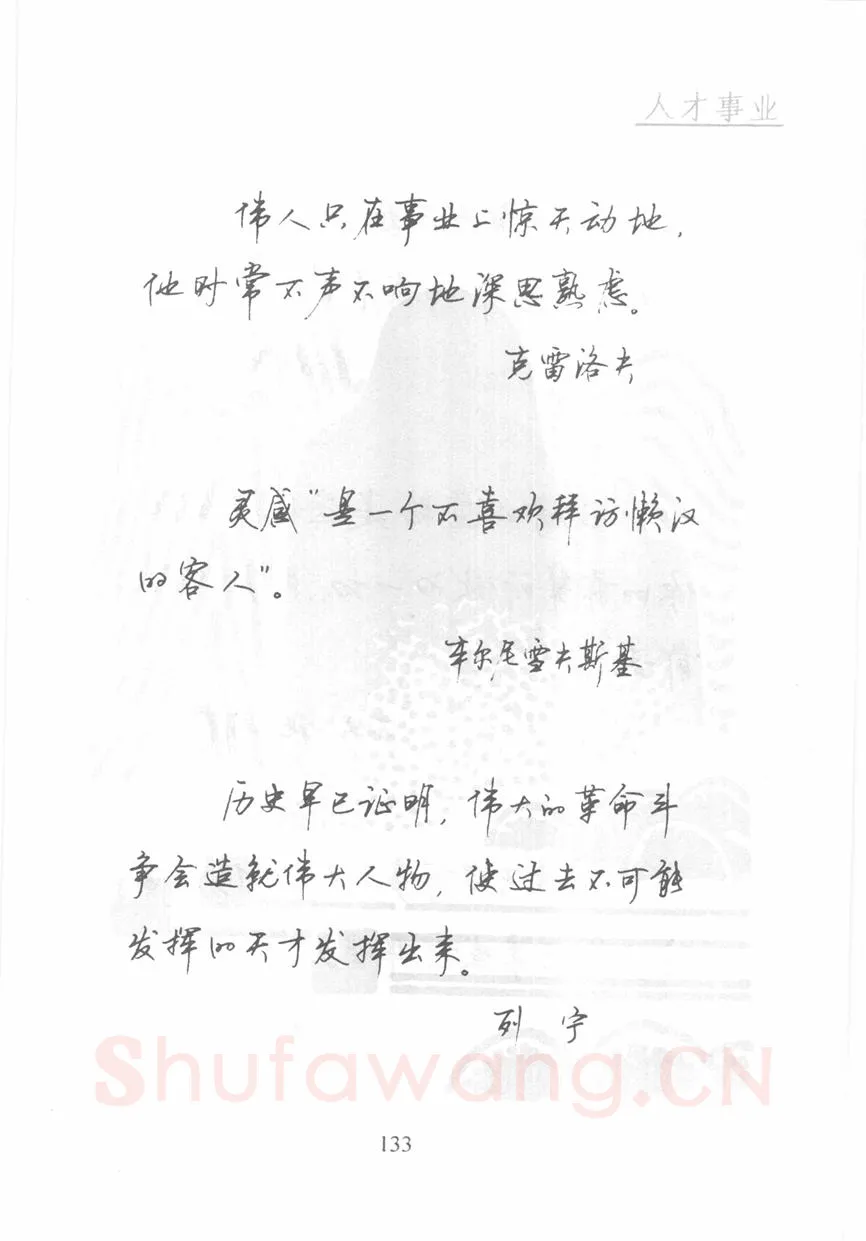 人才事业
伟人只在事业上惊天动地，
他时常不声不响地深思熟虑。
克雷洛夫
灵感"是一个不喜欢拜访懒汉
的客人"。
车尔尼雪夫斯基
历史早已证明，伟大的革命斗
争会造就伟大人物，使过去不可能
发挥的天才发挥出来。
列宁
Shufawang.CN
133